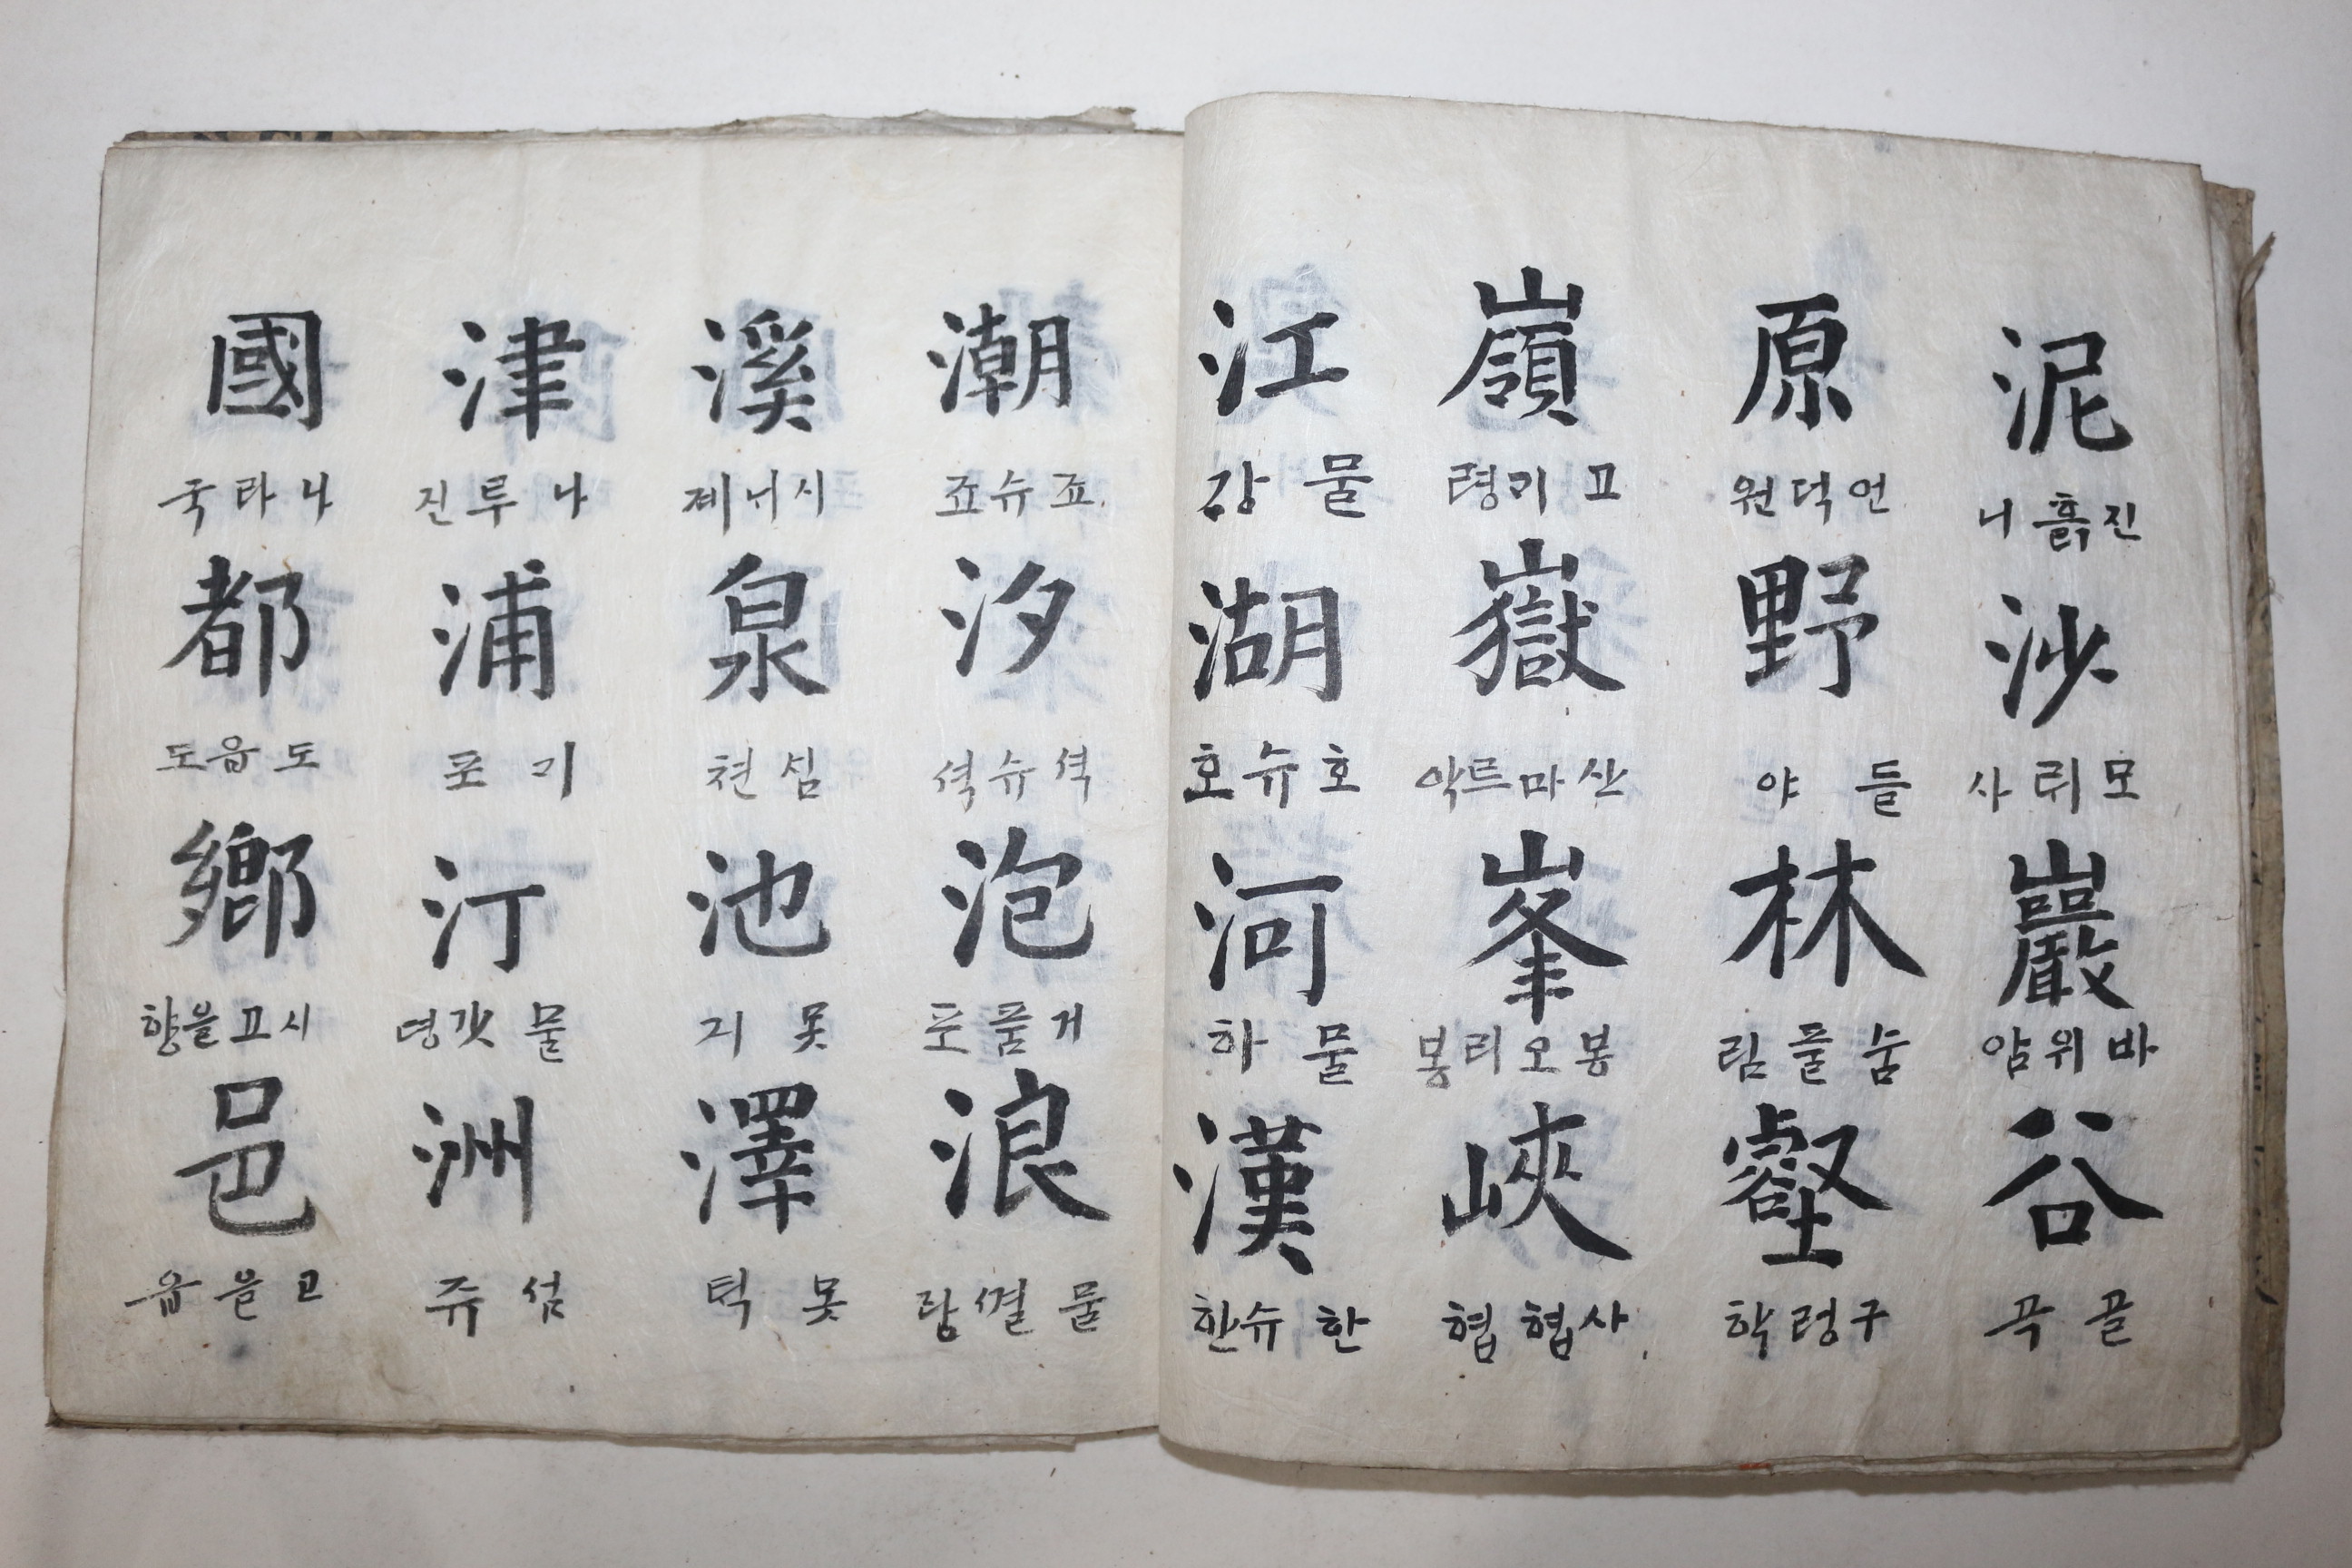 泥
진흙니
沙
모리사
巖
바위암
谷
골곡
原
언덕원
野
들야
林
숨풀림
壑
구렁학
嶺
고기령
嶽
산마르악
峯
봉오리봉
峽
사협협
江
물강
湖
호슈호
河
물하
漢
한슈한
潮
죠슈죠
汐
셕슈셕
泡
거품포
浪
물ᄭᅧᆯ랑
溪
시니졔
泉
심쳔
池
못지
澤
못턱
津
나루진
浦
기포
汀
물갓뎡
洲
섬쥬
國
나라국
都
도읍도
鄕
시고을향
邑
고을읍